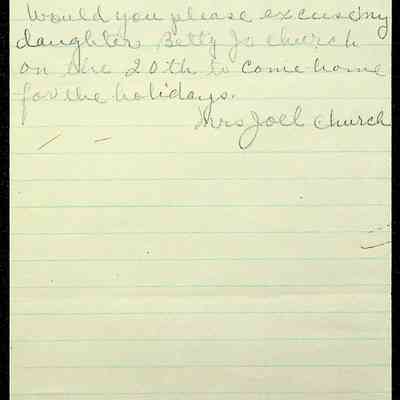 Would you please excuse my
daughter Betty Jo Church
on the 20th to come home
for the holidays.
Mrs Joel Church